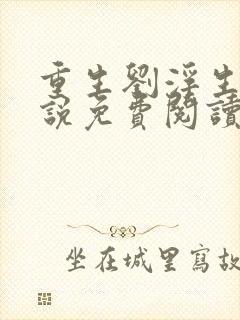 重生劉淫生
說免費閱讀
坐在城里寫故